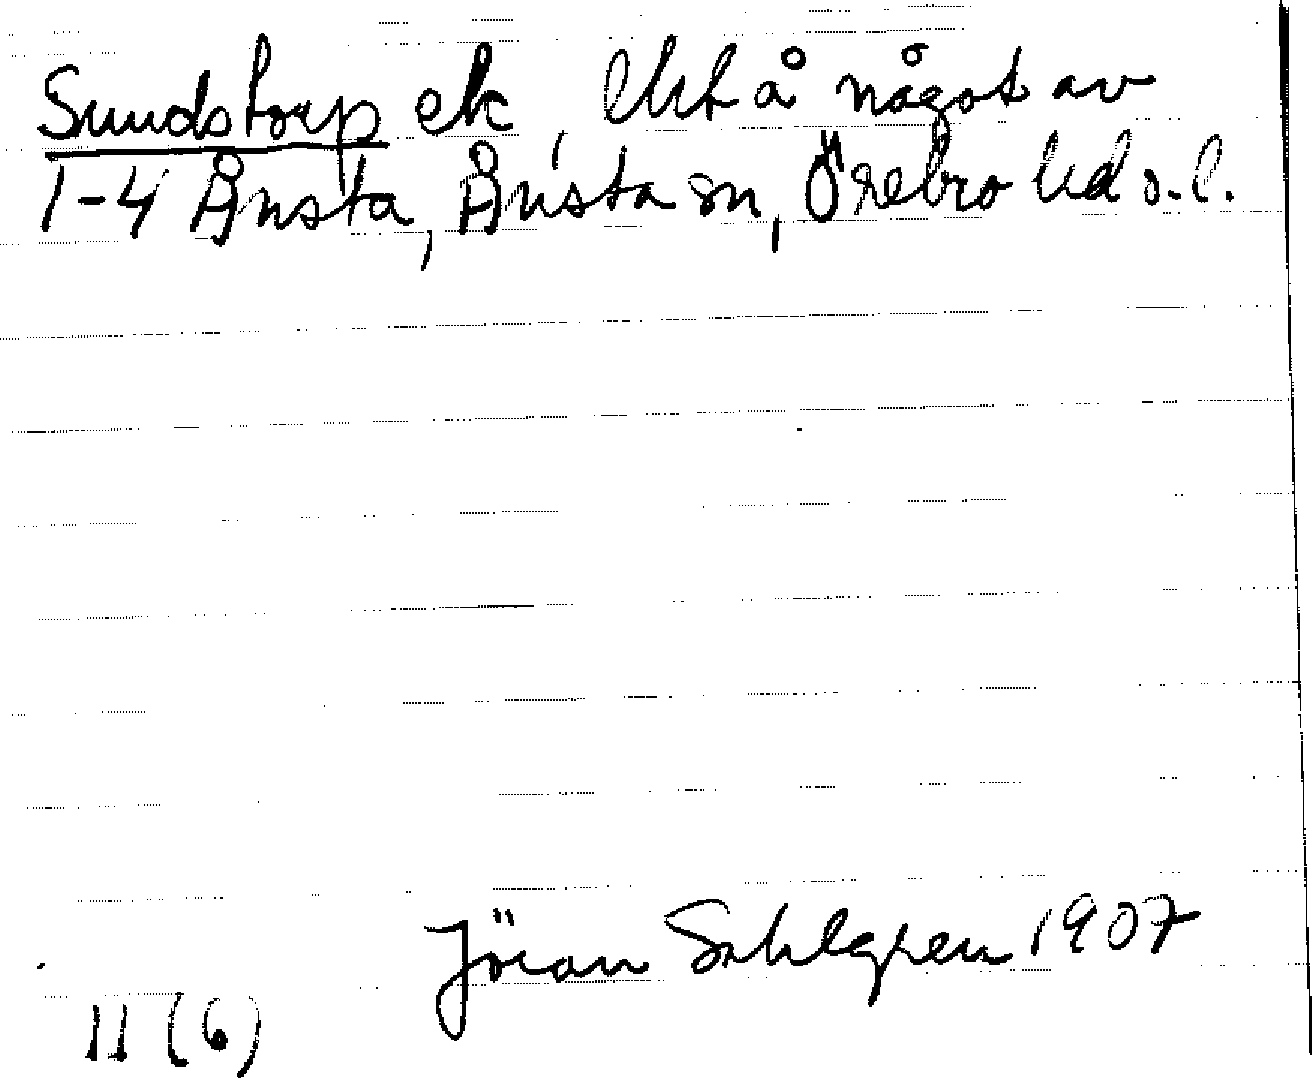 Sundstorp ek, Ekt å något av
1-4 Ånsta, Ånsta sn, Örebro hd ö.l.
Jöran Sahlgren 1907
11 (6)